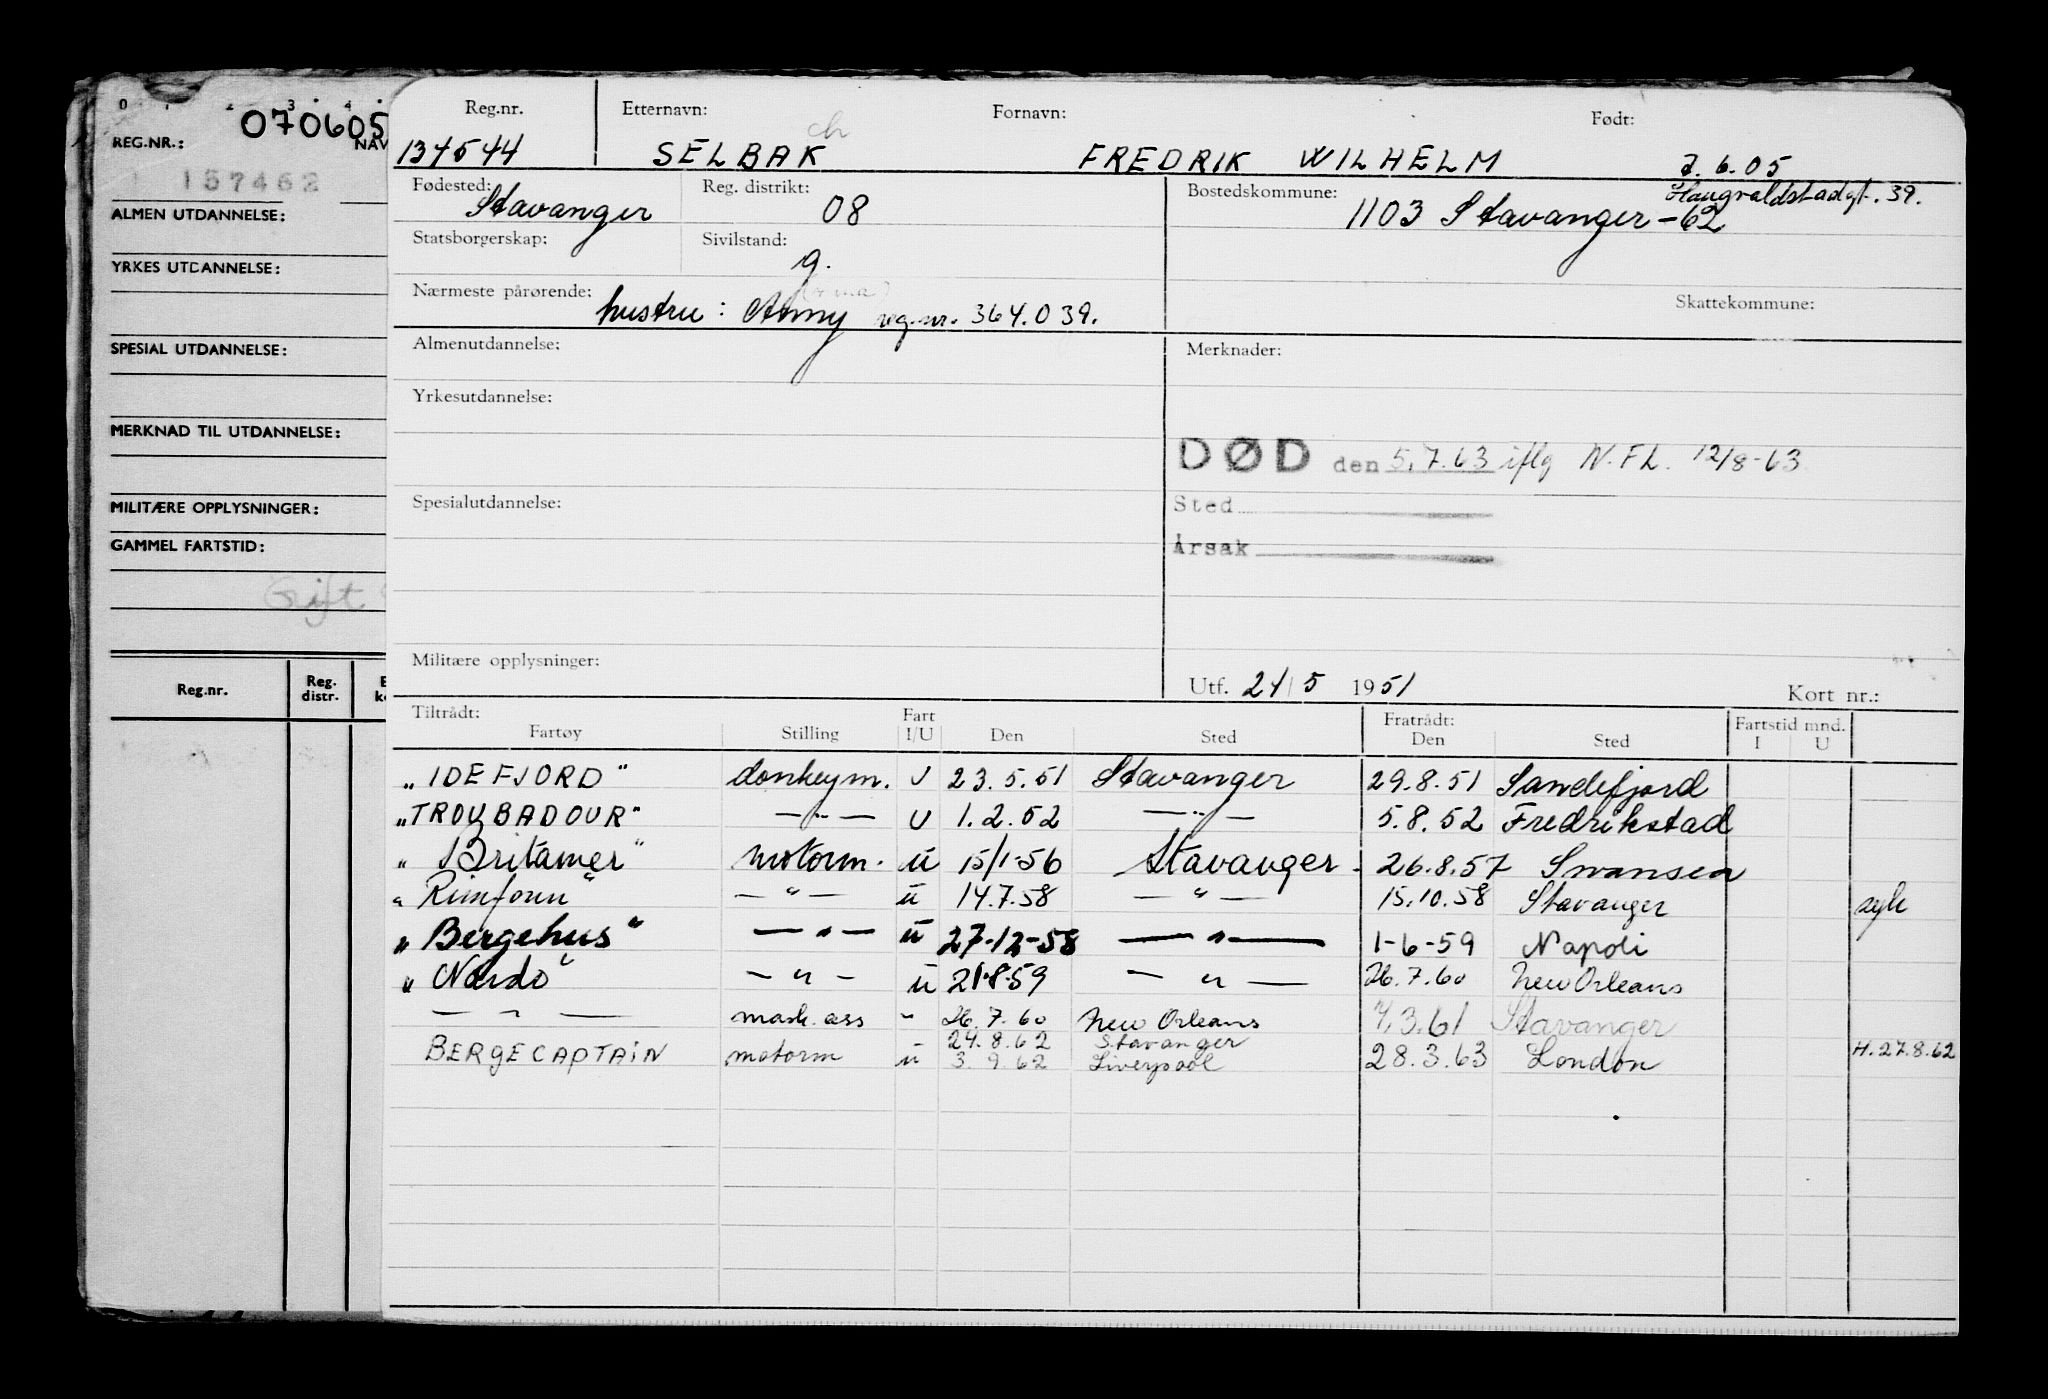 0 1 2 3 4
REG.NR.: 070605 NAV
157462
ALMEN UTDANNELSE:
YRKES UTDANNELSE:
SPESIAL UTDANNELSE:
MERKNAD TIL UTDANNELSE:
MILITÆRE OPPLYSNINGER:
GAMMEL FARTSTID:
Gift
Reg.nr. Reg. distr.
Reg.nr. Etternavn: Fornavn: Født:
ch
134544 SELBAK FREDRIK WILHELM 7.6.05
Fødested: Reg. distrikt: Bostedskommune: Haugvaldstadgt. 39.
Stavanger 08 1103 Stavanger -62
Statsborgerskap: Sivilstand:
g.
Nærmeste pårørende: Skattekommune:
hustru: Anny reg.nr. 364.039.
Almenutdannelse: Merknader:
Yrkesutdannelse:
DØD den 5.7.63 iflg N.FL. 12/8-63
Spesialutdannelse: Sted
Årsak
Militære opplysninger:
Utf. 24/5 1951 Kort nr.:
Tiltrådt: Fart Fratrådt: Fartstid mnd.
Fartøy Stilling I/U Den Sted Den Sted I U
„IDEFJORD" donkeym. U 23.5.51 Stavanger 29.8.51 Sandefjord
„TROUBADOUR" —"— U 1.2.52 —"— 5.8.52 Fredrikstad
„Britamer" motorm. u 15/1-56 Stavanger. 26.8.57 Swansea
„Rimfonn" —"— u 14.7.58 —"— 15.10.58 Stavanger syk
„Bergehus" —"— u 27-12-58 —"— 1-6-59 Napoli
„Nardo" —"— u 21.8.59 —"— 26.7.60 New Orleans
—"— mask. ass " 26.7.60 New Orleans 7.3.61 Stavanger
24.8.62 Stavanger
BERGECAPTAIN motorm u 3.9.62 Liverpool 28.3.63 London H.27.8.62